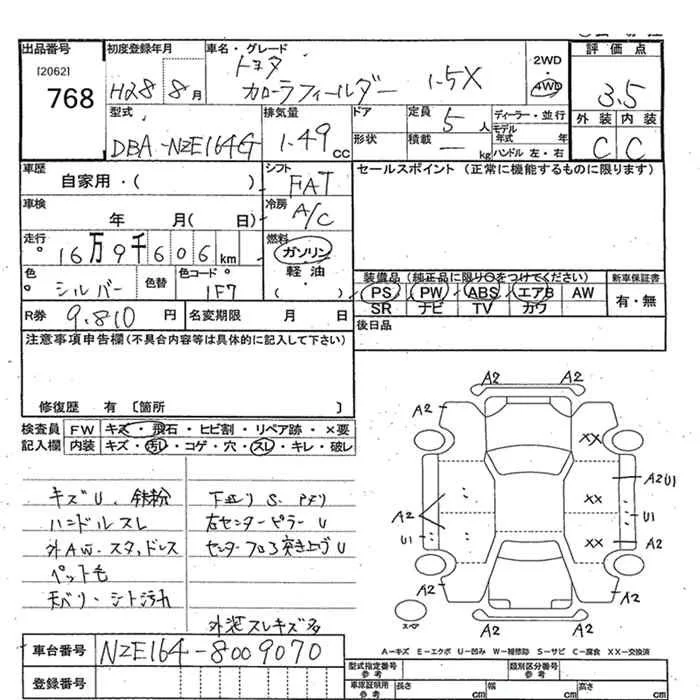 出品番号 初度登録年月 車名・グレード 評価点
[2062] トヨタ 2WD
768 H28 8月 カローラフィールダー 1.5X 4WD 3.5
型式 排気量 ドア 定員 5人 ディーラー・並行 外装 内装
DBA-NZE164G 1.49cc 形状 積載 ー kg モデル年式 年 C C
ハンドル 左・右
車歴 シフト セールスポイント (正常に機能するものに限ります)
自家用・( ) FAT
車検 冷房
年 月( 日) A/C
走行 燃料
16万9千606km ガソリン
色 色替 色コード 軽油 装備品 (純正品に限り○をつけてください) 新車保証書
シルバー 1F7 ・( ) PS PW ABS エアB AW 有・無
SR ナビ TV カワ
R券 9.810円 名変期限 月 日 後日品
注意事項申告欄(不具合内容等は具体的に記入して下さい)
修復歴 有 〔箇所 〕
検査員 FW キズ・飛石・ヒビ割・リペア跡・×要
記入欄 内装 キズ・汚レ・コゲ・穴・スレ・キレ・破レ
キズU、鉄粉
ハンドルスレ
外AW.スタッドレス
ペット毛
天バリ・シート汚れ
下廻りS.
右センターピラーU
センターフロア突き上げU
外装スレキズ多
A2 A2
A2 A2
XX
XX A2 U1
A2 U1
U1 XX A2
A2 A2
スペア A2 A2
A-キズ E-エクボ U-凹み W-補修跡 S-サビ C-腐食 XX-交換済
車台番号 NZE164-8009070
登録番号
型式指定番号 参考 類別区分番号 参考
車庫証明用 参考 長さ cm 幅 cm 高さ cm